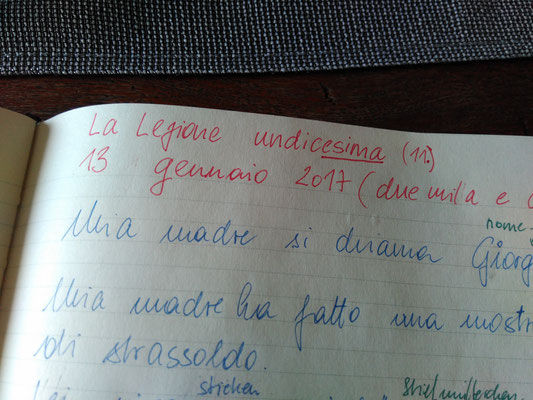 La Lezione undicesima (11.)
13 gennaio 2017 (due mila e
nome
Mia madre si chiama Giorg
Mia madre ha fatto una mostr
di strassoldo.
sticken
Stiefmütterchen